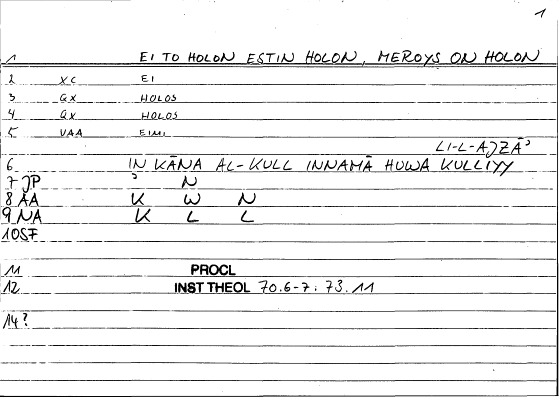 1
1 EI TO HOLON ESTIN HOLON, MEROYS ON HOLON
2 XC EI
3 QX HOLOS
4 QX HOLOS
5 VAA EIMI
LI-L-AJZĀʾ
6 IN KĀNA AL-KULL INNAMĀ HUWA KULLIYY
7 JP ʾ N
8 AA K W N
9 NA K L L
10 SF
11 PROCL
12 INST THEOL 70.6-7: 73.11
14 ?